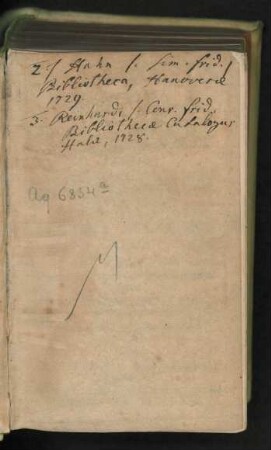 2.) Hahn /. Sim. frid. /
Bibliotheca, Hanoverae
1729.
3. Reinhardi /. Conr. frid.
Bibliothecae Catalogus
Halae, 1728.
Aq 6834a